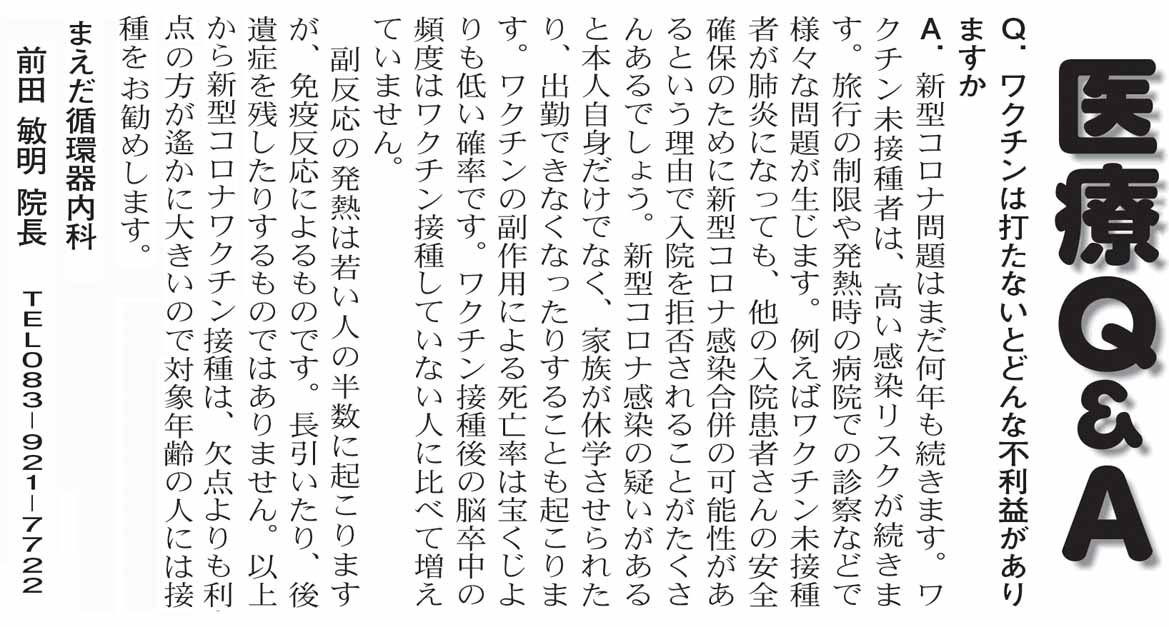 医療Q&A
Q．ワクチンは打たないとどんな不利益があり
ますか
A．新型コロナ問題はまだ何年も続きます。ワ
クチン未接種者は、高い感染リスクが続きま
す。旅行の制限や発熱時の病院での診察などで
様々な問題が生じます。例えばワクチン未接種
者が肺炎になっても、他の入院患者さんの安全
確保のために新型コロナ感染合併の可能性があ
るという理由で入院を拒否されることがたくさ
んあるでしょう。新型コロナ感染の疑いがある
と本人自身だけでなく、家族が休学させられた
り、出勤できなくなったりすることも起こりま
す。ワクチンの副作用による死亡率は宝くじよ
りも低い確率です。ワクチン接種後の脳卒中の
頻度はワクチン接種していない人に比べて増え
ていません。
副反応の発熱は若い人の半数に起こります
が、免疫反応によるものです。長引いたり、後
遺症を残したりするものではありません。以上
から新型コロナワクチン接種は、欠点よりも利
点の方が遙かに大きいので対象年齢の人には接
種をお勧めします。
まえだ循環器内科
前田 敏明 院長 TEL083-921-7722